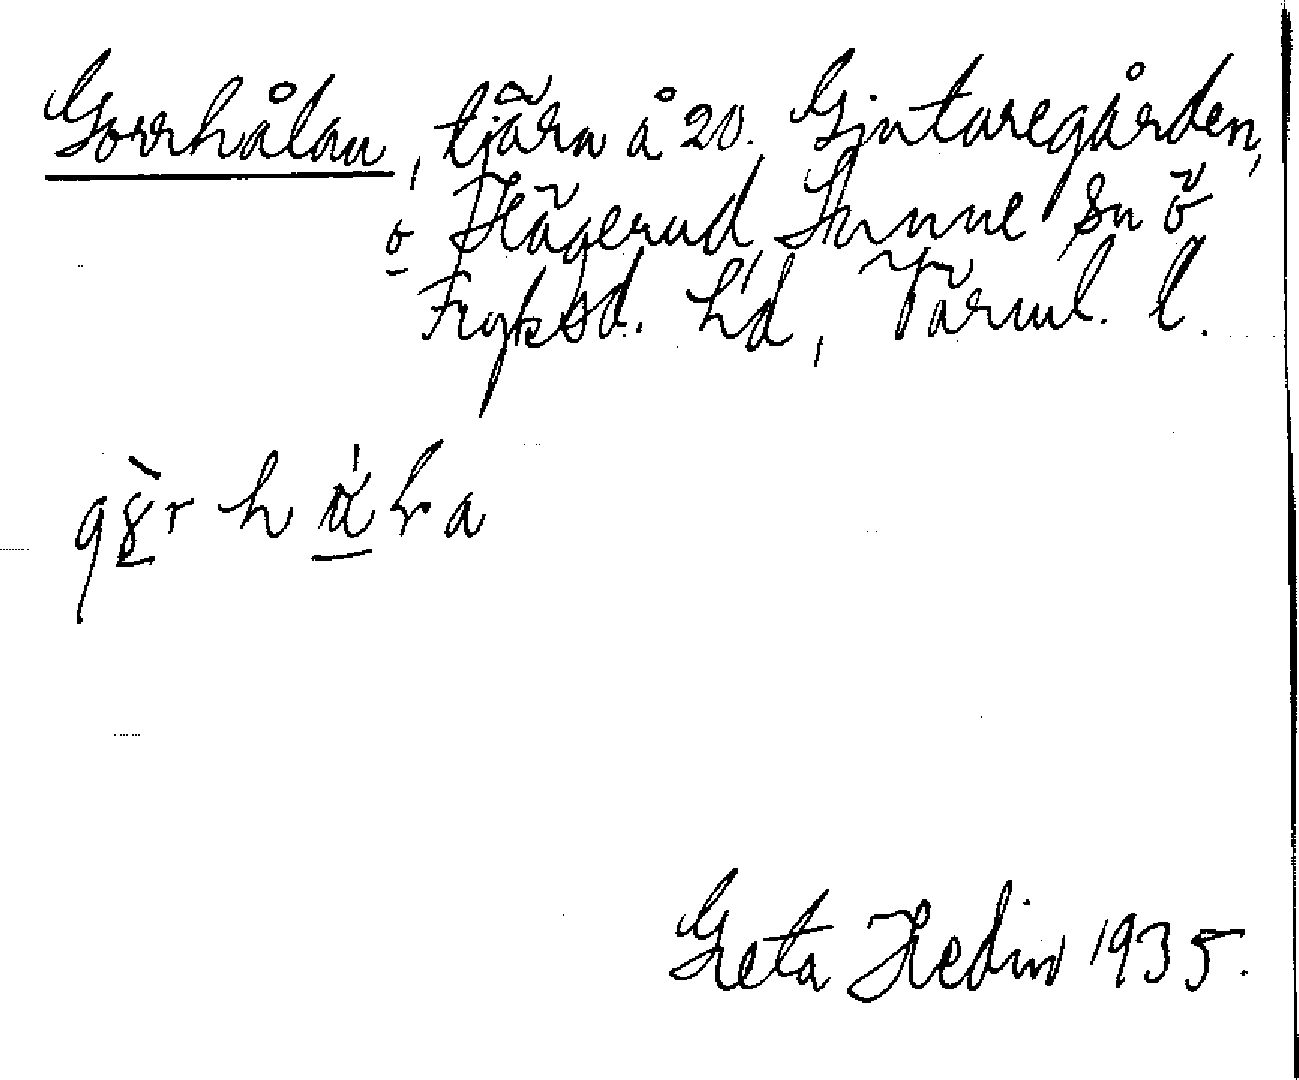 Gorrhålan, tjärn å 20. Gjutaregården,
o Hägerud Sunne sn ö
Fryksd. h'd, Värml. l.
Greta Hedin 1935.